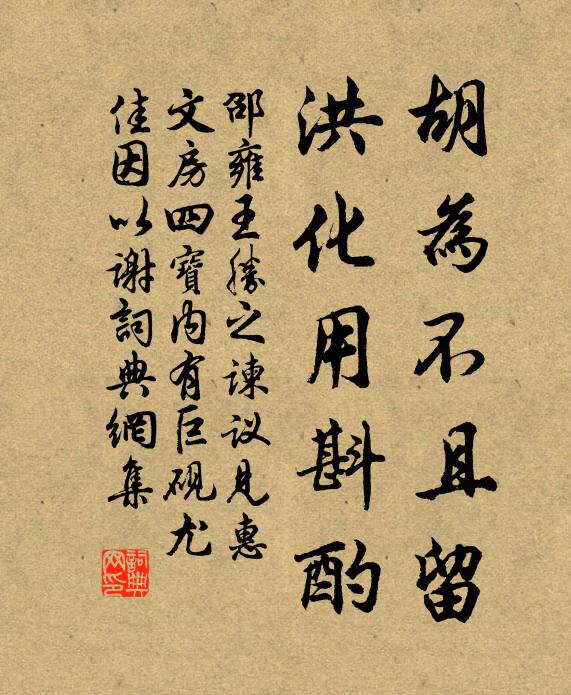 胡為不且留
洪化用斟酌
邵雍王勝之諫议見惠
文房四寶内有巨硯尤
佳因以谢詞典網集
詞典网印